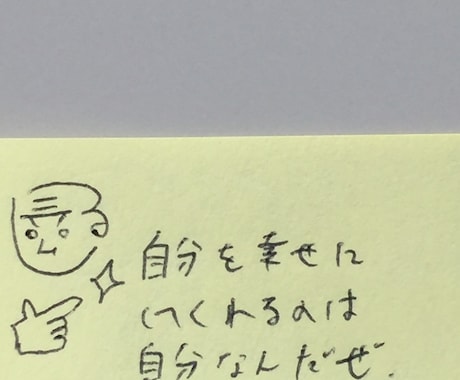 自分を幸せに
してくれるのは
自分なんだぜ.